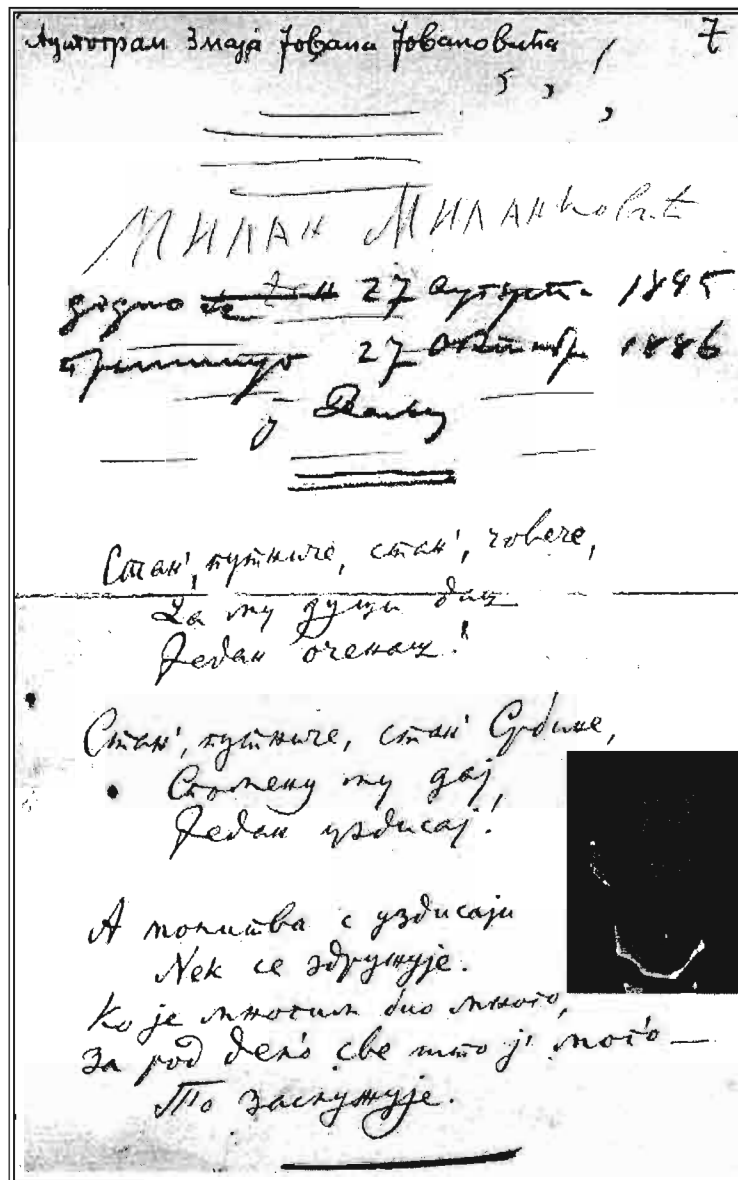 Аутограм Змаја Јована Јовановића 7
МИЛАН МИЛАНКовић
27 Аугуста 1845
преминуо 27 Октобра 1886
у Даљу
Стан', путниче, стан', човече,
Да му души даш
Један оченаш!
Стан', путниче, стан' Србине,
Спомену му дај
Један уздисај!
А молитва с уздисаји
Nек се здружује.
Ко је многим био много,
За род дел'о све што ј' мог'о —
То заслужује.